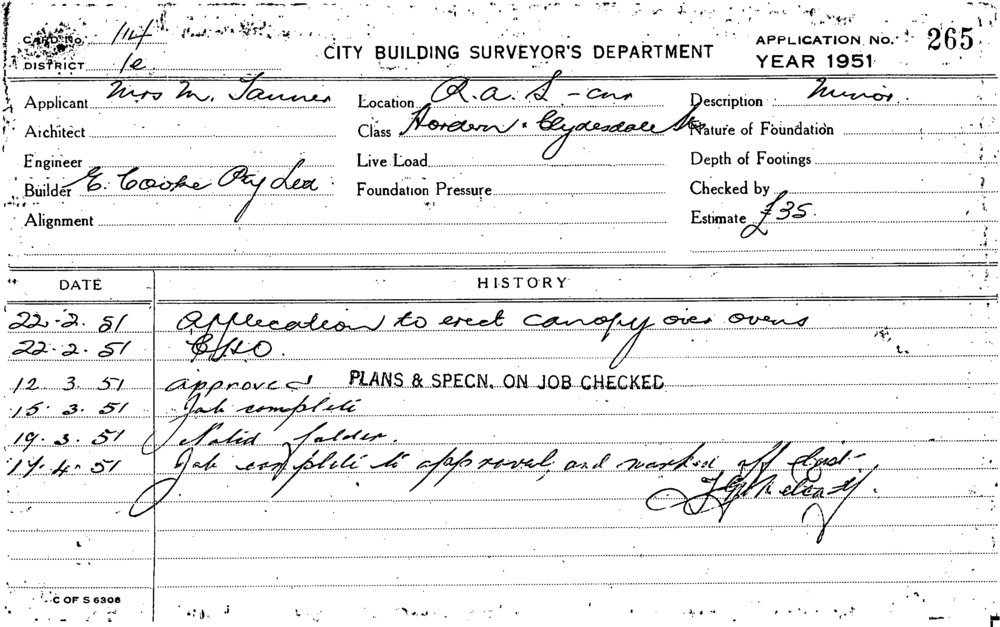 CARD No. 114
DISTRICT 1e
CITY BUILDING SURVEYOR'S DEPARTMENT
APPLICATION No. 265
YEAR 1951
Applicant Mrs M. Tanner
Location R.A.S - cnr
Description Minor.
Architect
Class Hordern & Clydesdale
Nature of Foundation
Engineer
Live Load
Depth of Footings
Builder E. Cooke Pty Ltd
Foundation Pressure
Checked by
Alignment
Estimate £35.
DATE HISTORY
22.2.51 Application to erect canopy over ovens
22.2.51
12.3.51 approved PLANS & SPECN. ON JOB CHECKED
15.3.51 Job complete
19.3.51 Noted folder.
17.4.51 Job complete to approval, and marked off
C OF S 6308